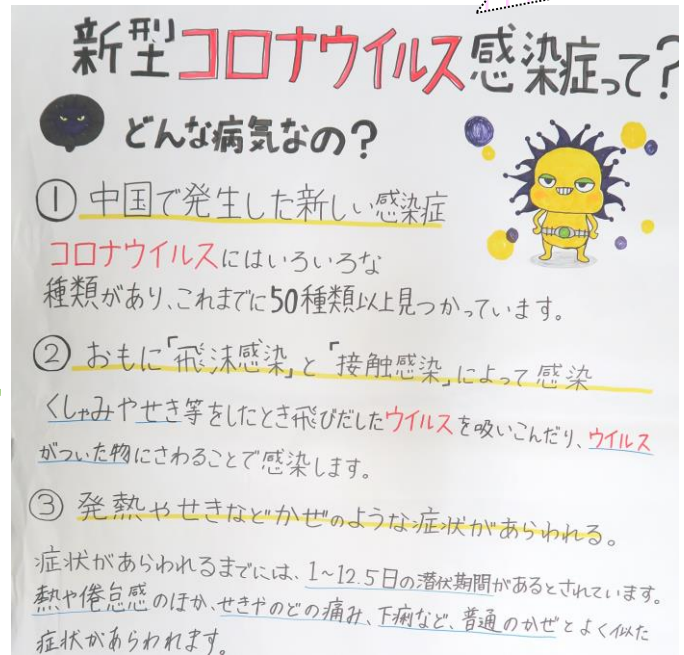 新型コロナウイルス感染症って?
どんな病気なの?
① 中国で発生した新しい感染症
コロナウイルスにはいろいろな
種類があり、これまでに50種類以上見つかっています。
② おもに「飛沫感染」と「接触感染」によって感染
くしゃみやせき等をしたとき飛びだしたウイルスを吸いこんだり、ウイルス
がついた物にさわることで感染します。
③ 発熱やせきなどかぜのような症状があらわれる。
症状があらわれるまでには、1~12.5日の潜伏期間があるとされています。
熱や倦怠感のほか、せきやのどの痛み、下痢など、普通のかぜとよく似た
症状があらわれます。